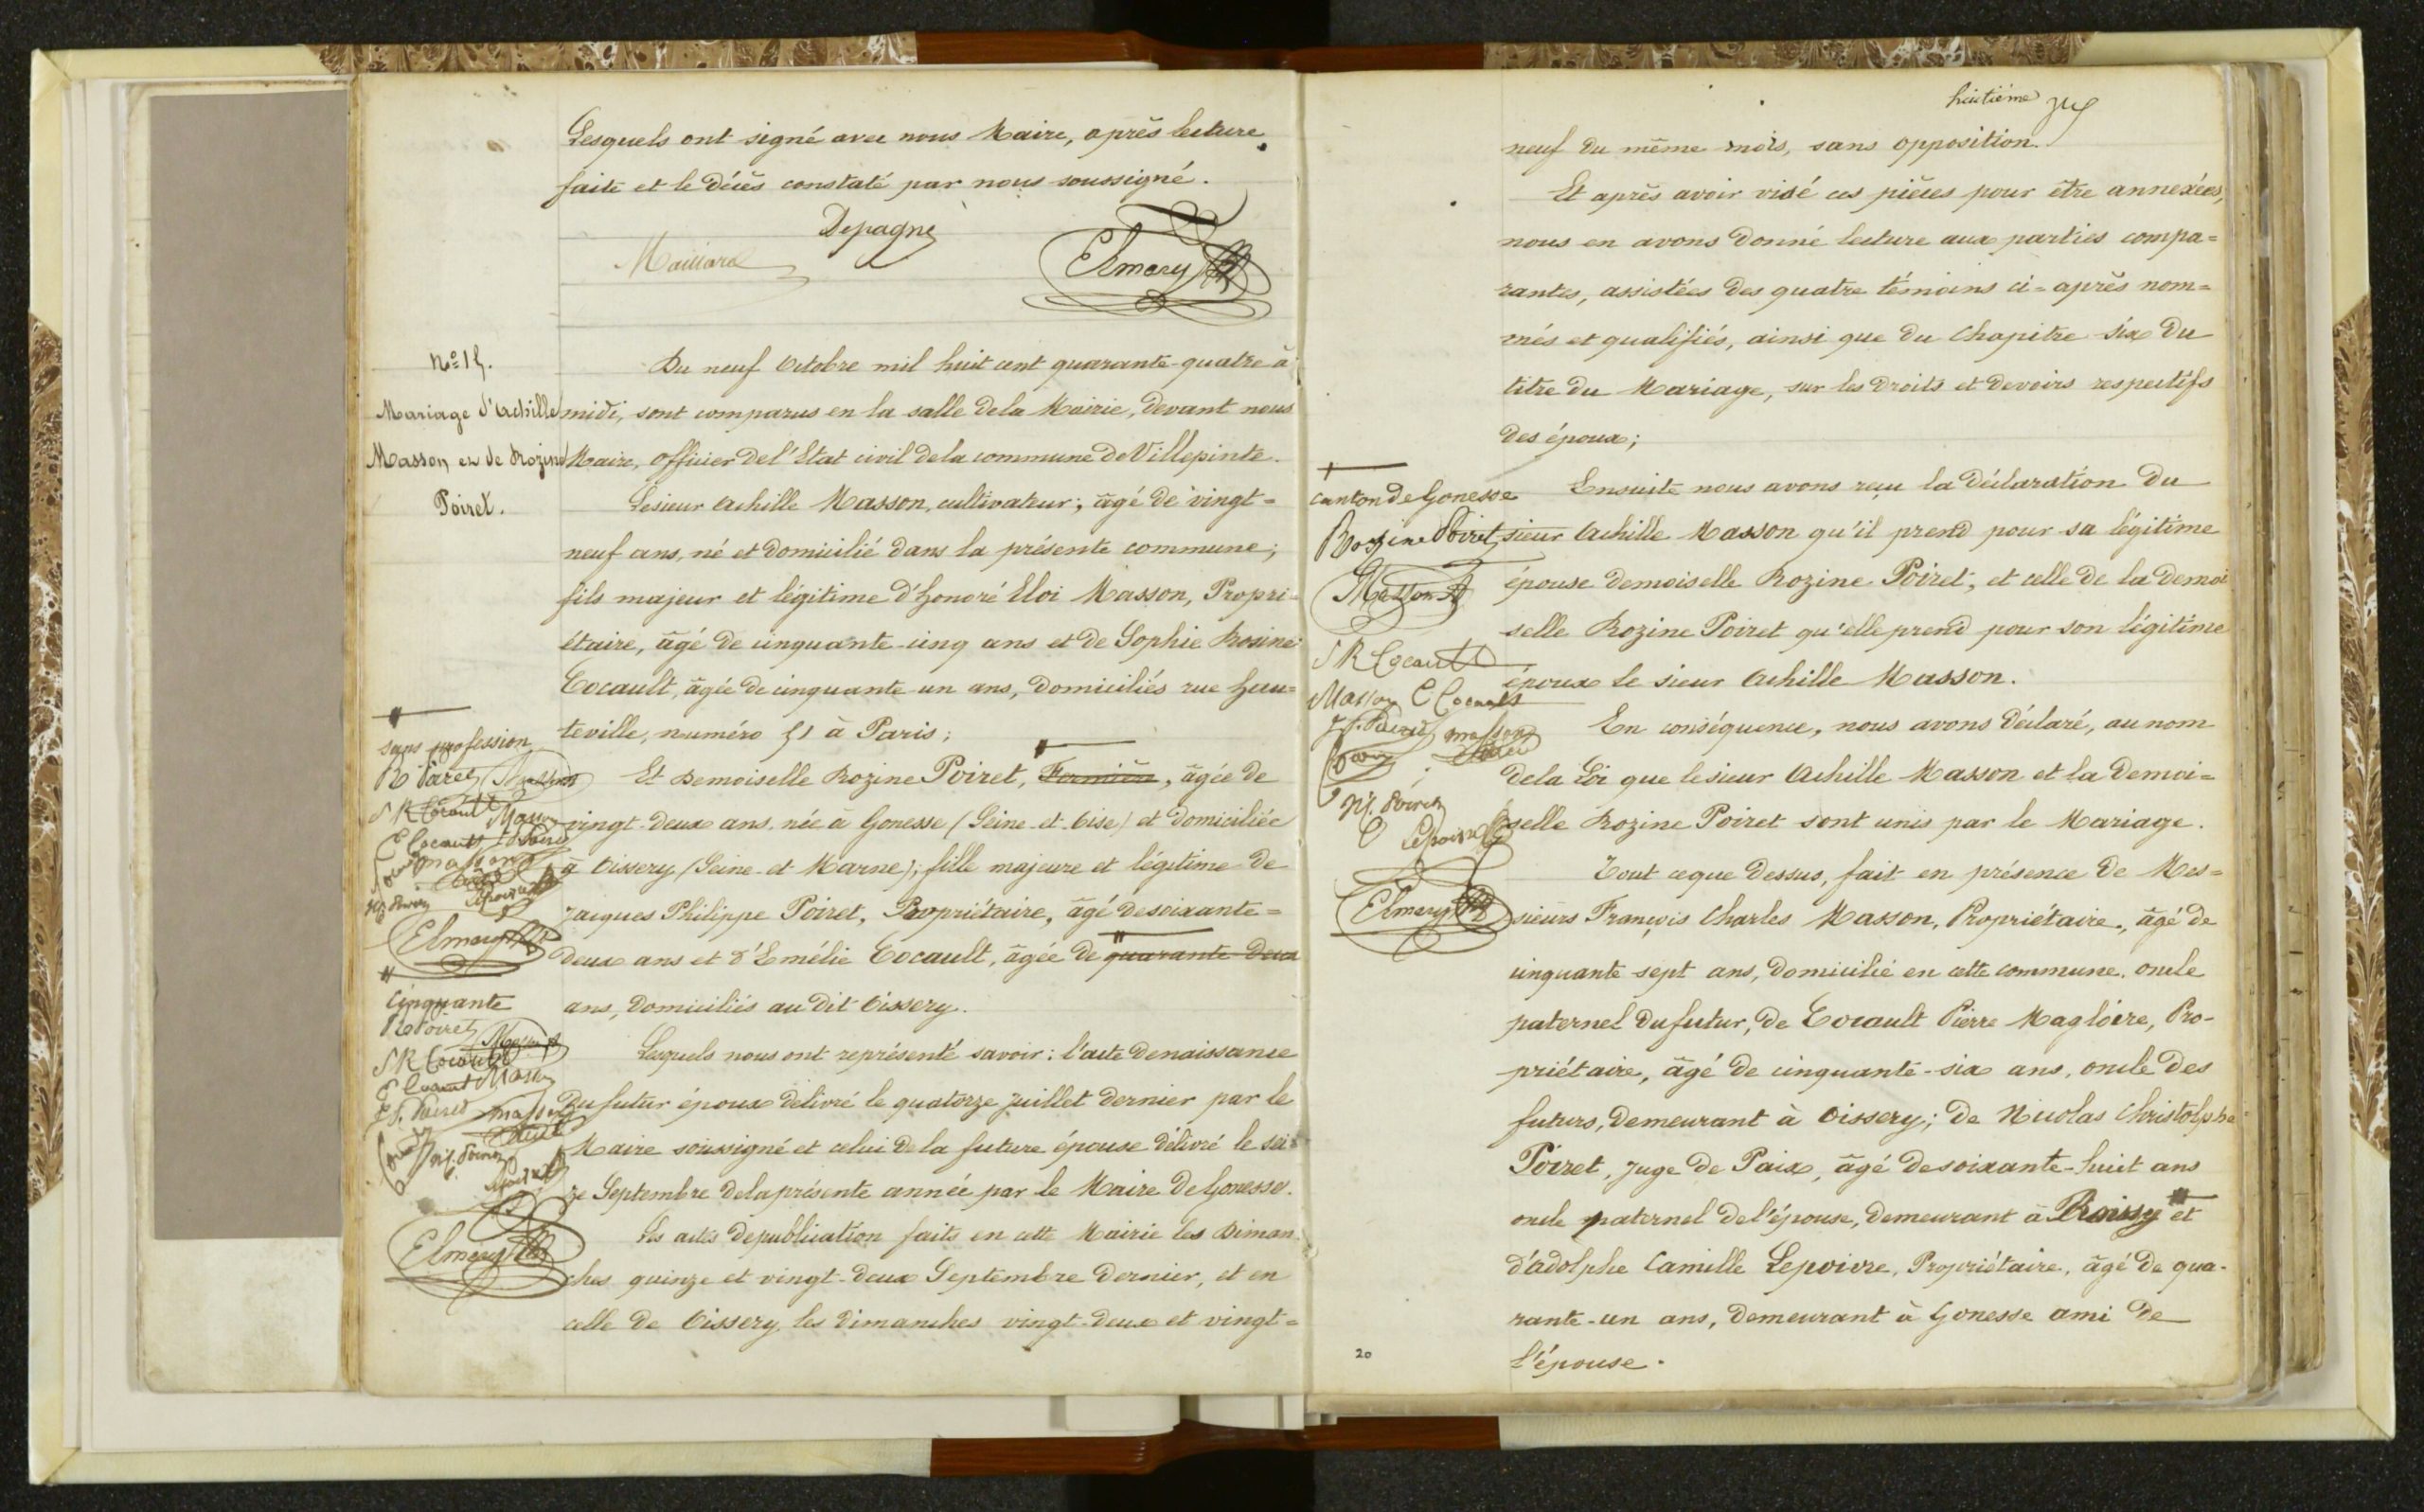 Lesquels ont signé avec nous Maire, après lecture
faite et le décès constaté par nous soussigné.
Depagne
Maillard
Elmery
Nº 15.
Mariage d'Achille
Masson et de Rozine
Poiret.
Du neuf Octobre mil huit cent quarante-quatre à
midi, sont comparus en la salle de la Mairie, devant nous
Maire, officier de l'Etat civil de la commune de Villepinte.
Le sieur Achille Masson, cultivateur, âgé de vingt=
neuf ans, né et domicilié dans la présente commune;
fils majeur et légitime d'honoré Eloi Masson, Propri-
étaire, âgé de cinquante-cinq ans et de Sophie Rosine
Cocault, âgée de cinquante-un ans, domiciliés rue hau=
teville, numéro 51 à Paris;
Et Demoiselle Rozine Poiret, Fermière, âgée de
vingt-deux ans, née à Gonesse (Seine-et-Oise) et domiciliée
à Oissery (Seine-et-Marne); fille majeure et légitime de
Jacques Philippe Poiret, Propriétaire, âgé de soixante=
deux ans et d'Emélie Cocault, âgée de quarante-deux
ans, domiciliés au dit Oissery.
Lesquels nous ont représenté savoir: l'acte de naissance
du futur époux délivré le quatorze Juillet dernier par le
Maire soussigné et celui de la future épouse délivré le sei=
ze Septembre de la présente année par le Maire de Gonesse.
Les actes de publication faits en cette Mairie les Diman-
ches quinze et vingt-deux Septembre dernier, et en
celle de Oissery, les dimanches vingt-deux et vingt=
sans profession
R Poiret
S R Cocault
E Cocault
Masson
Elmery
Cinquante
R Poiret
Masson A
S R Cocault
E Cocault Masson
J P. Poiret
Masson
N C. Poiret
Elmery
huitième
neuf du même mois, sans opposition.
Et après avoir visé ces pièces pour être annexées,
nous en avons donné lecture aux parties compa=
rantes, assistées des quatre témoins ci=après nom=
més et qualifiés, ainsi que du Chapitre six du
titre du Mariage, sur les droits et devoirs respectifs
des époux;
Ensuite nous avons reçu la déclaration du
sieur Achille Masson qu'il prend pour sa légitime
épouse demoiselle Rozine Poiret; et celle de la demoi
selle Rozine Poiret qu'elle prend pour son légitime
époux le sieur Achille Masson.
En conséquence, nous avons déclaré, au nom
de la Loi que le sieur Achille Masson et la demoi=
selle Rozine Poiret sont unis par le Mariage.
Tout ce que dessus, fait en présence de Mes=
sieurs François Charles Masson, Propriétaire, âgé de
cinquante sept ans, domicilié en cette commune, oncle
paternel du futur, de Cocault Pierre Magloire, Pro-
priétaire, âgé de cinquante-six ans, oncle des
futurs, demeurant à Oissery; de Nicolas Christolphe
Poiret, Juge de Paix, âgé de soixante-huit ans
oncle paternel de l'épouse, demeurant à Roissy et
d'adolphe Camille Lepoivre, Propriétaire, âgé de qua-
rante-un ans, demeurant à Gonesse ami de
l'épouse.
canton de Gonesse
Rozine Poiret
Masson A
S R Cocault
Masson E Cocault
J P. Poiret Masson
N C. Poiret
Lepoivre
Elmery
20